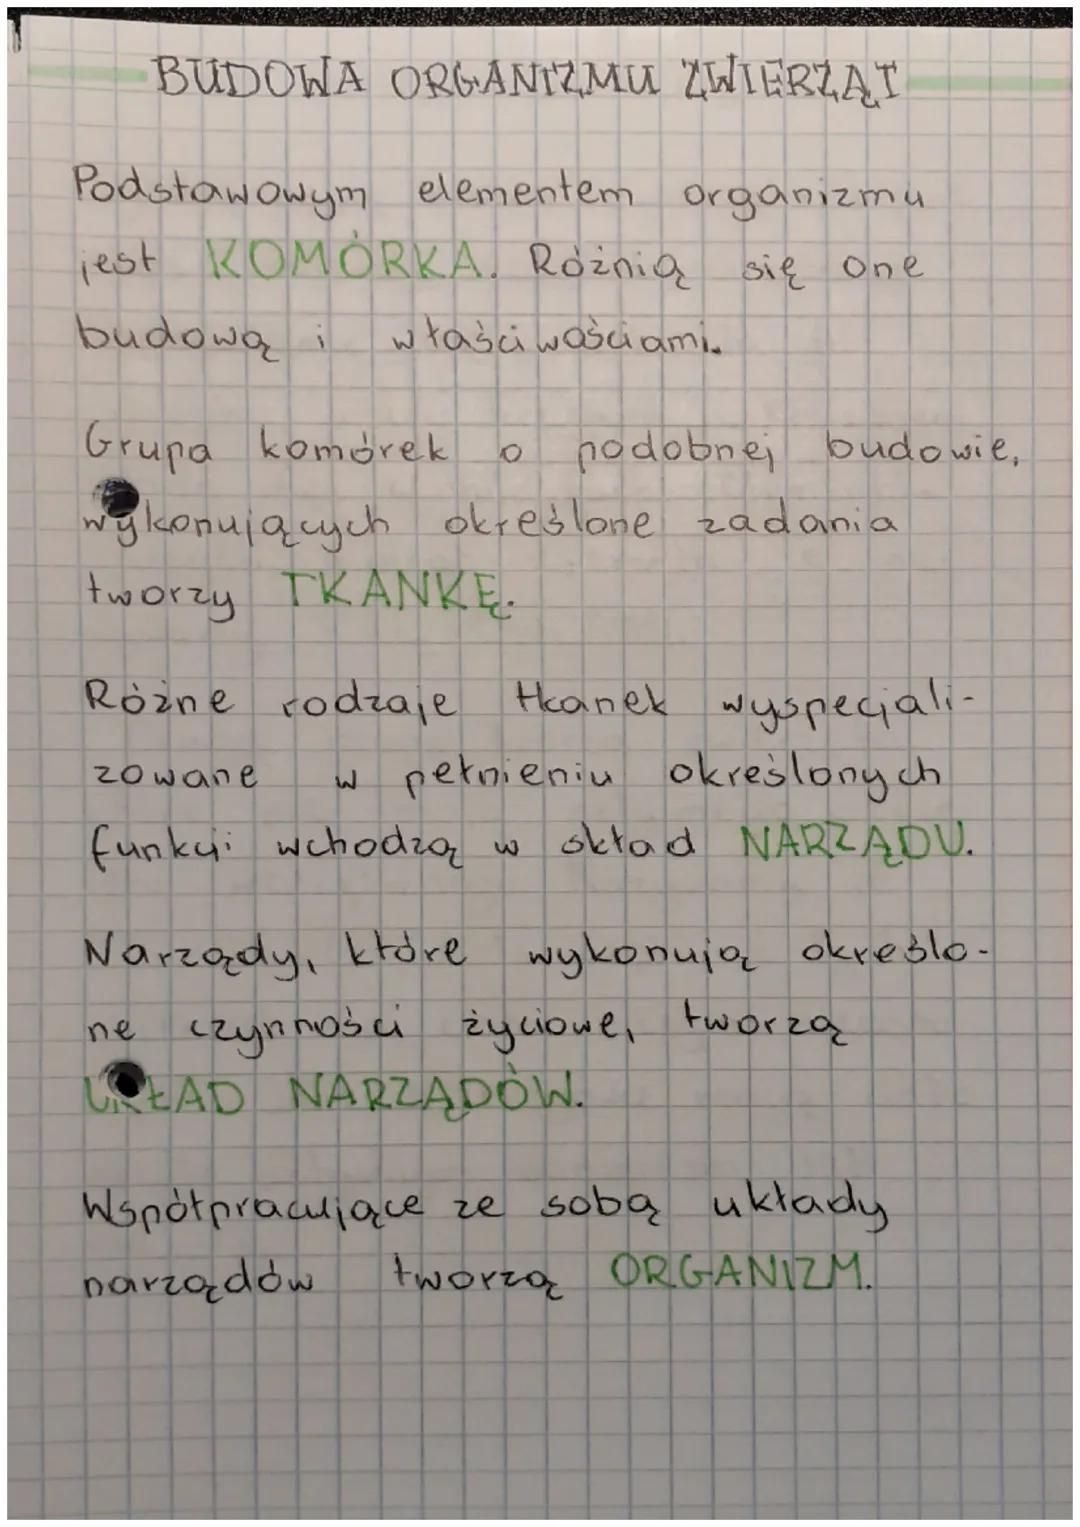 BUDOWA ORGANIZMU ZWIERZĄT
Podstawowym elementem organizmu
jest KOMÓRKA. Różnią się one
budową i właściwościami.
Grupa komórek o podobnej budowie,
wykonujących określone zadania
tworzy TKANKĘ.
Różne rodzaje tkanek wyspecjali-
zowane w pełnieniu określonych
funkcji wchodzą w skład NARZĄDU.
Narządy, które wykonują określo-
ne czynności życiowe, tworzą
UKŁAD NARZĄDÓW.
Współpracujące ze sobą układy
narządów tworzą ORGANIZM.